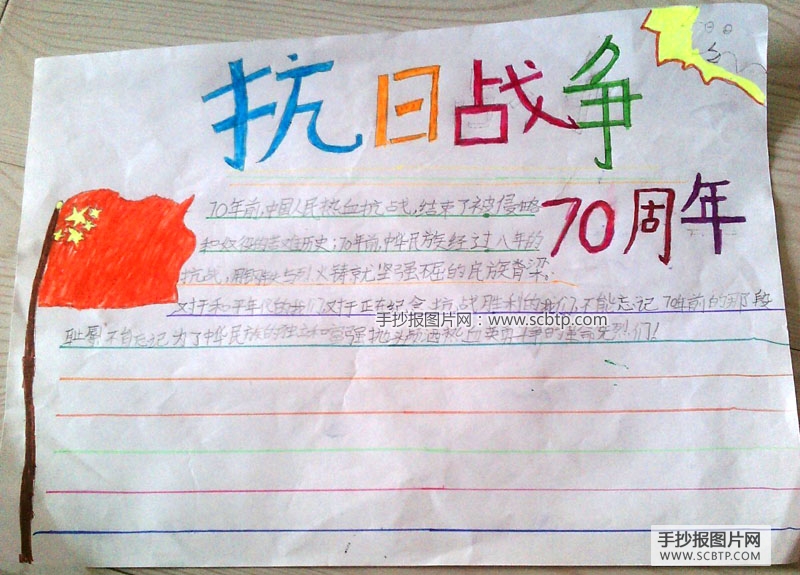 抗日战争
70周年
70年前,中国人民热血抗战,结束了被侵略
和奴役的苦难历史;70年前,中华民族经过八年的
抗战,用与火铸就坚强不屈的民族脊梁。
对于和平年代的我们,对于正在纪念抗战胜利的我们,不能忘记70年前的那段
耻辱,不能忘记为了中华民族的独立和富强抛头颅洒热血英勇的烈们!
手抄报图片网:www.scbtp.com
手抄报图片网
WWW.SCBTP.COM